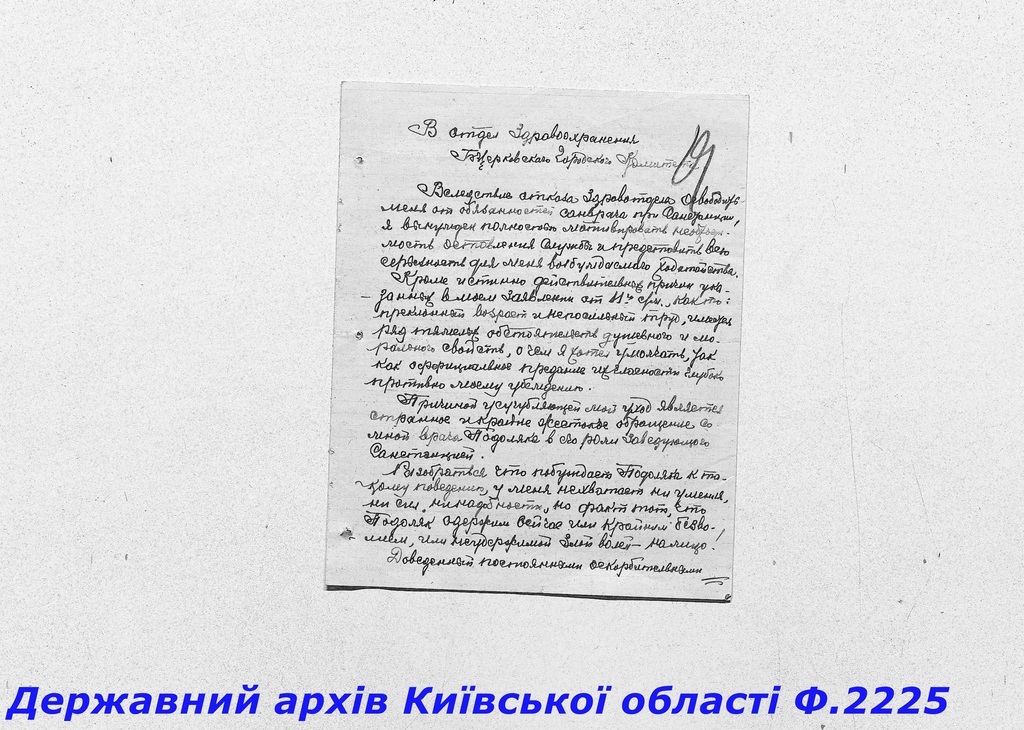 В отдел Здравоохранения
Бцерковского Городского Комитета
19
Вследствие отказа Здравотдела освободить
меня от обязанностей санврача при Санстанции,
я вынужден полностью мотивировать необходи-
мость оставления службы и представить всю
серьезность для меня возбуждаемого ходатайства.
Кроме истинно действительных причин ука-
занных в моем заявлении от 11го с/м., как то:
преклонный возраст и непосильный труд, имеется
ряд тяжелых обстоятельств душевного и мо-
рального свойств, о чем я хотел умолчать, так
как официальное предание их гласности глубоко
противно моему убеждению.
Причиной усугубляющей мой уход является
странное и крайне жестокое обращение со
мной врача Подоляка в его роли Заведующего
Санстанцией.
Разобраться что побуждает Подоляка к та-
кому поведению, у меня нехватает ни умения,
ни сил, ни надобности, но факт тот, что
Подоляк одержим сейчас или крайним безво-
лием, или непреклонной злой волей - налицо.
Доведенный постоянными оскорбительными
Державний архів Київської області Ф.2225